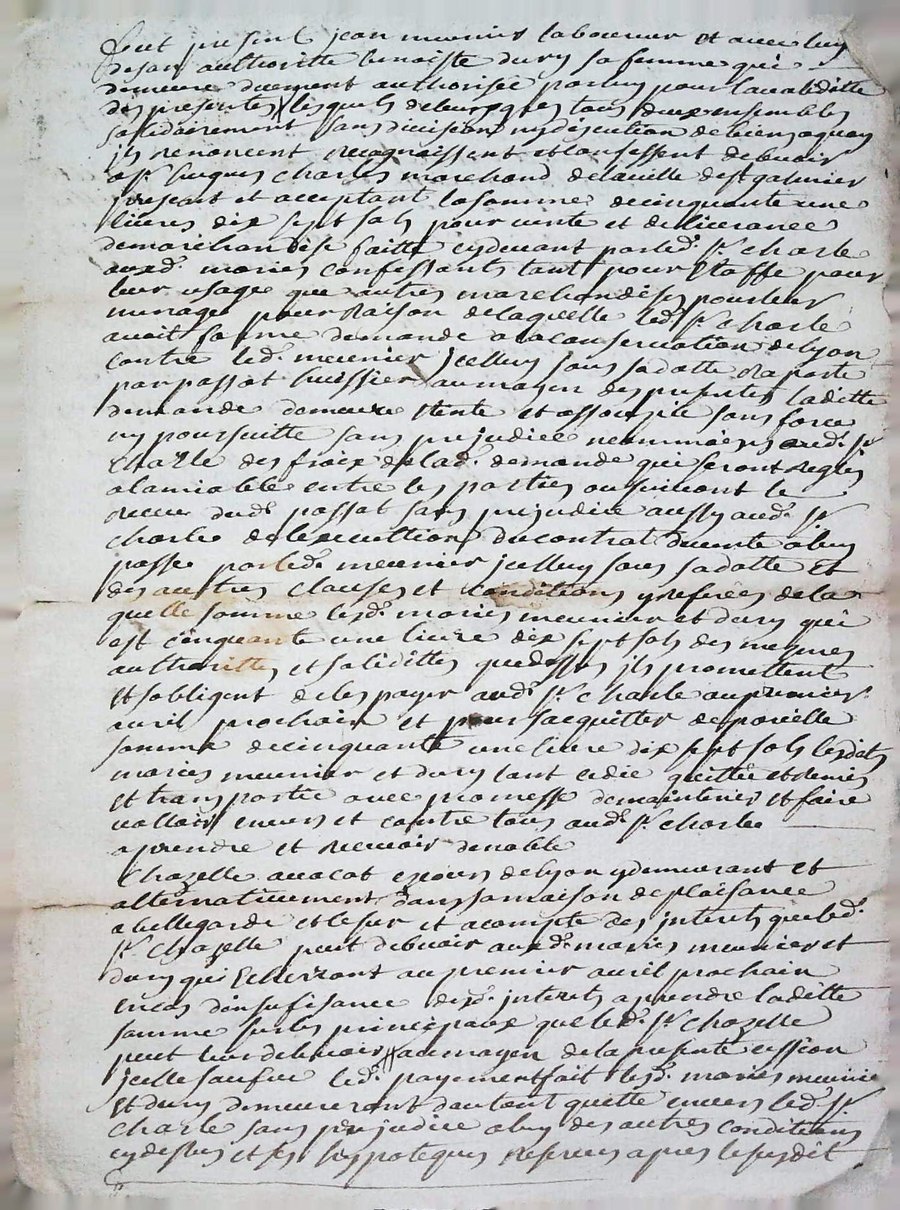 fut present jean meunier laboureur et avec luy
de son authoritté benoiste dury sa femme qui
demeure duement authorisée par luy pour la validitté
des presentes lesquels de leurs gres tous deux ensembles
solidairement sans division ny discution de biens a quoy
ils renoncent recognoissent et confessent debvoir
a sr hugues charles marchand de la ville de st galmier
present et acceptant la somme de cinquante une
livres dix sept sols pour vente et delivrance
de marchandise faitte cy devant par led. sr charle
auxd. mariés confessants tant pour etoffe pour
leur usage que autres marchandises pour leur
menage pour raison de laquelle led. sr charle
avoit formé demande a la conservation de lyon
contre led. meunier icelluy sous sa datte raporté
par passot huissier au moyen des presentes laditte
demande demeure etente et assoupie sans force
ny poursuitte sans prejudice neanmoiens aud. sr
charle des fraix de lad. demande qui seront regles
a lamiable entre les parties ou suivant le
receu dud. passot sans prejudice aussy aud. sr
charle de lexecuttion du contrat de vente a luy
passé par led. meunier icelluy sous sa datte et
des auttres clauses et conditions y referées de la
quelle somme lesd. mariés meunier et dury qui
est cinquante une livre dix sept sols des mesmes
authorittes et solidittes que dessus ils promettent
et sobligent de les payer aud. sr charle au premier
avril prochain et pour sacquitter de pareille
somme de cinquante une livre dix sept sols lesdits
mariés meunier et dury ont cedé quitté et remis
et transporté avec promesse de maintenir et faire
valloir envers et contre tous aud. sr charle
a prendre et recevoir de noble
Chazelle avocat es cours de lyon y demeurant et
alternativement dans sa maison de plaisance
a bellegarde et le sur et a compte des interets que led.
sr Chazelle peut debvoir auxd. mariés meunier et
dury qui echerront au premier avril prochain
en cas dinsufisance desd. interets a prendre laditte
somme sur les principaux que led. sr Chazelle
peut leur debvoir au moyen de la presente cession
icelle led. payement fait lesd. mariés meunier
et dury demeureront dautant quitte envers led. sr
charle sans prejudice a luy des autres conditions
cy dessus et ses hypoteques reserves apres le susdit